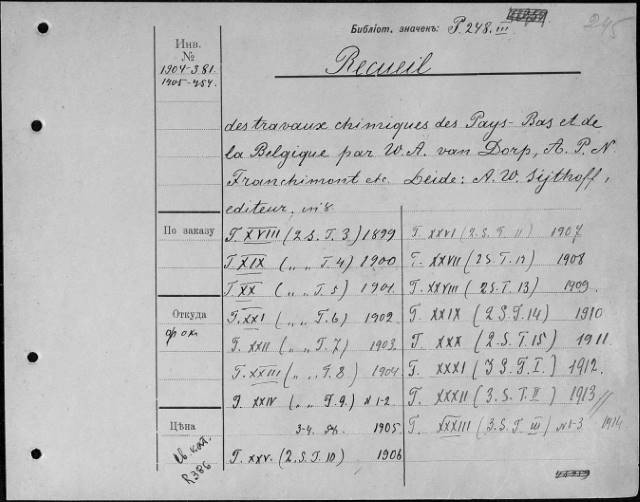 Библіот. значекъ: P. 248. III
245
Инв.
№
1904-381.
1905-254.
Recueil
des travaux chimiques des Pays-Bas et de
la Belgique par W. A. van Dorp, A. P. N.
Franchimont etc. Leide: A. W. Sijthoff,
editeur, in 8
По заказу
Откуда
Цѣна
св. кат.
R386
T. XVIII (2.S.T.3) 1899
T. XIX ( „ „ T.4) 1900
T. XX ( „ „ T.5) 1901.
T. XXI ( „ „ T.6) 1902.
T. XXII ( „ „ T.7) 1903.
T. XXIII ( „ „ T.8) 1904
T. XXIV ( „ „ T.9.) N 1-2
3-4 1905.
T. XXV. (2.S.T.10) 1906
T. XXVI (2.S.T.11) 1907
T. XXVII (2S.T.12) 1908
T. XXVIII (2S.T.13) 1909.
T. XXIX (2.S.T.14) 1910
T. XXX (2.S.T.15) 1911.
T. XXXI (3.S.T.I.) 1912.
T. XXXII (3.S.T.II) 1913
T. XXXIII (3.S.T.III) N 1-3 1914